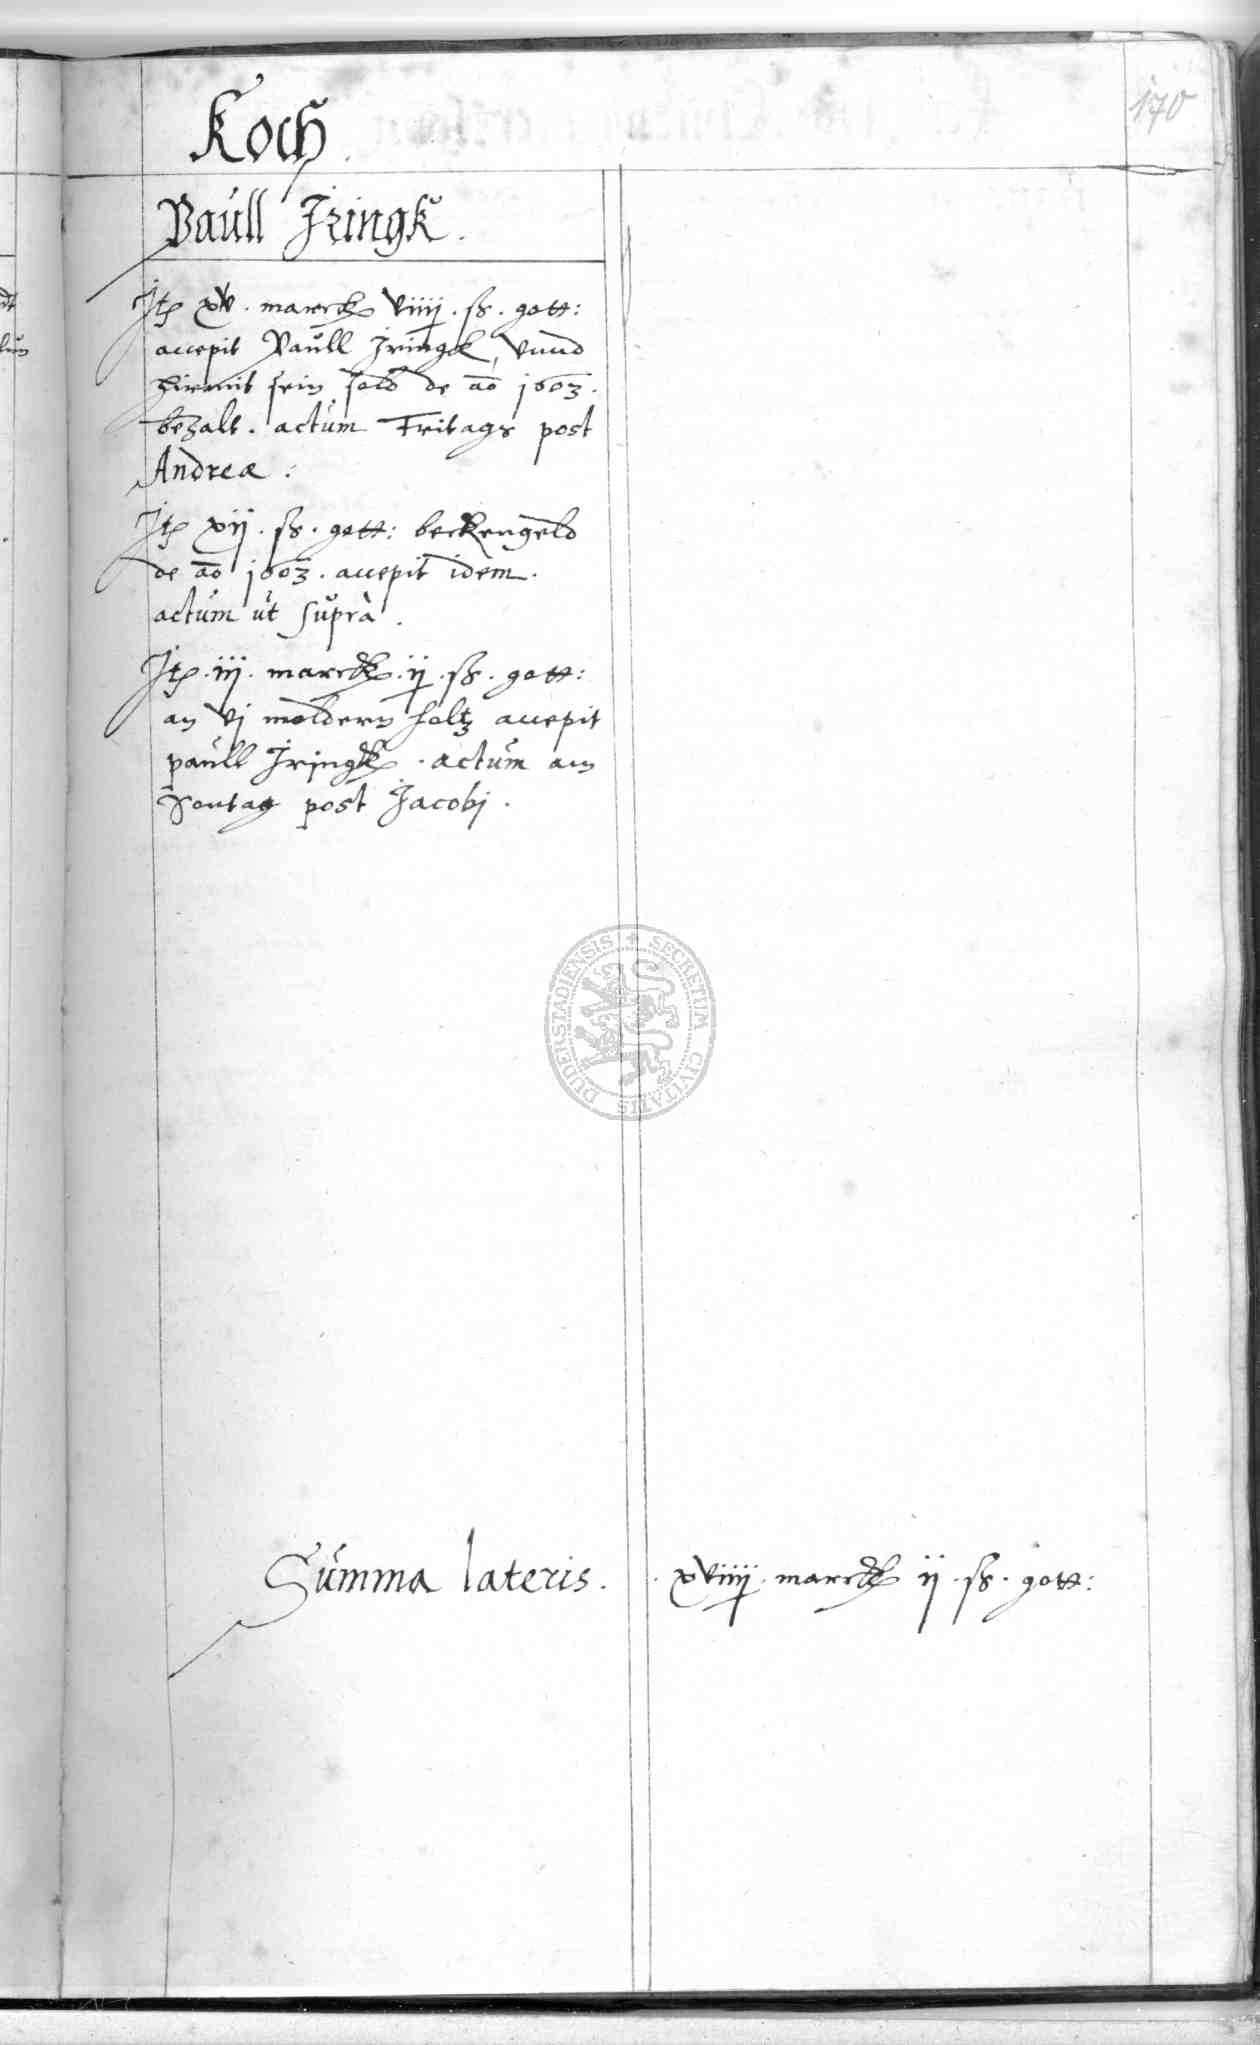 170
Koch
Paull Jringk.
Jtem xv. marck viiij. ß. gott:
accepit Paull Jringk, vnnd
hirmit sein sold de ao 1603.
bezalt. actum Fritags post
Andreæ.
Jtem xij. ß. gott: beckengeld
de ao 1603. accepit idem.
actum ut suprà.
Jtem. iij. marck. ij. ß. gott:
an vj moldern holtz accepit
paull Jringk. actum am
Sontag post Jacobj.
DUDERSTADIENSIS + SECRETUM CIVITATIS
Summa lateris. xviiij. marck ij. ß. gott: